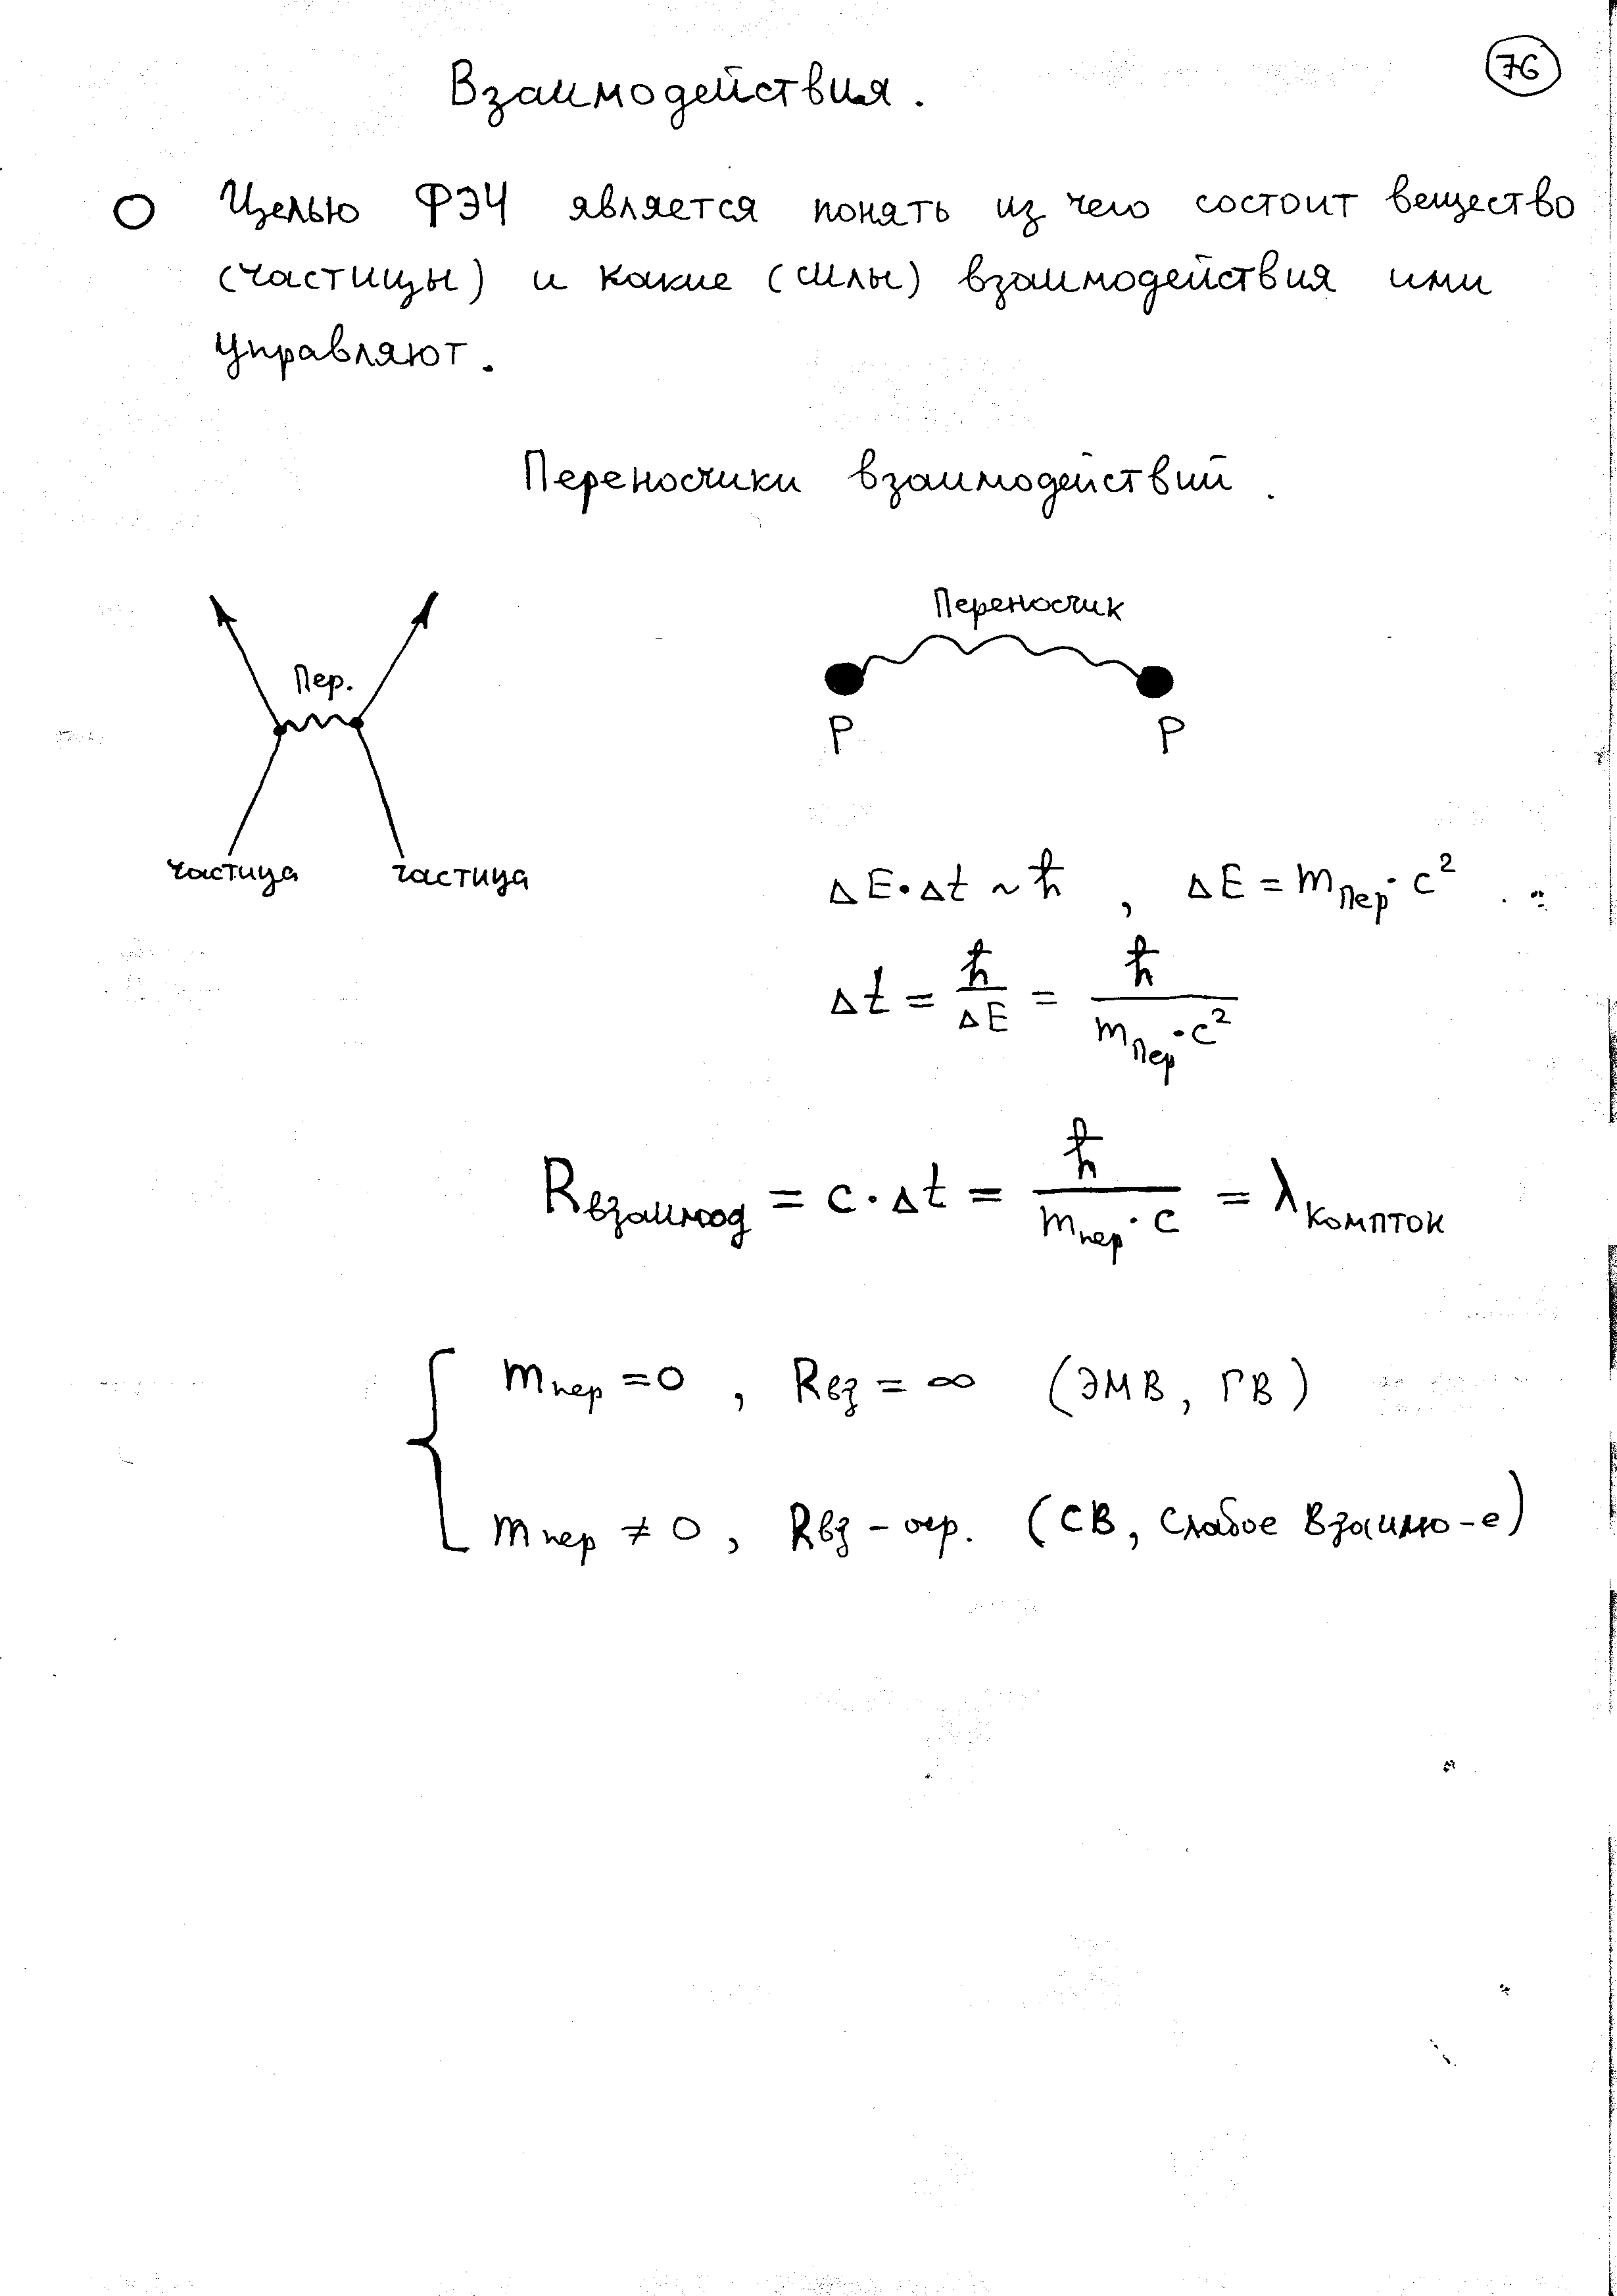 76
Взаимодействия.
Целью ФЭЧ является понять из чего состоит вещество
(частицы) и какие (силы) взаимодействия ими
управляют.
Переносчики взаимодействий.
Пер.
частица частица
Переносчик
P P
ΔE·Δt ~ ħ , ΔE = m_Пер · c²
Δt = ħ/ΔE = ħ/(m_Пер · c²)
R_взаимод = c · Δt = ħ/(m_пер · c) = λ_комптон
m_пер = 0 , R_вз = ∞ (ЭМВ, ГВ)
m_пер ≠ 0 , R_вз – огр. (СВ, Слабое Взаимо-е)